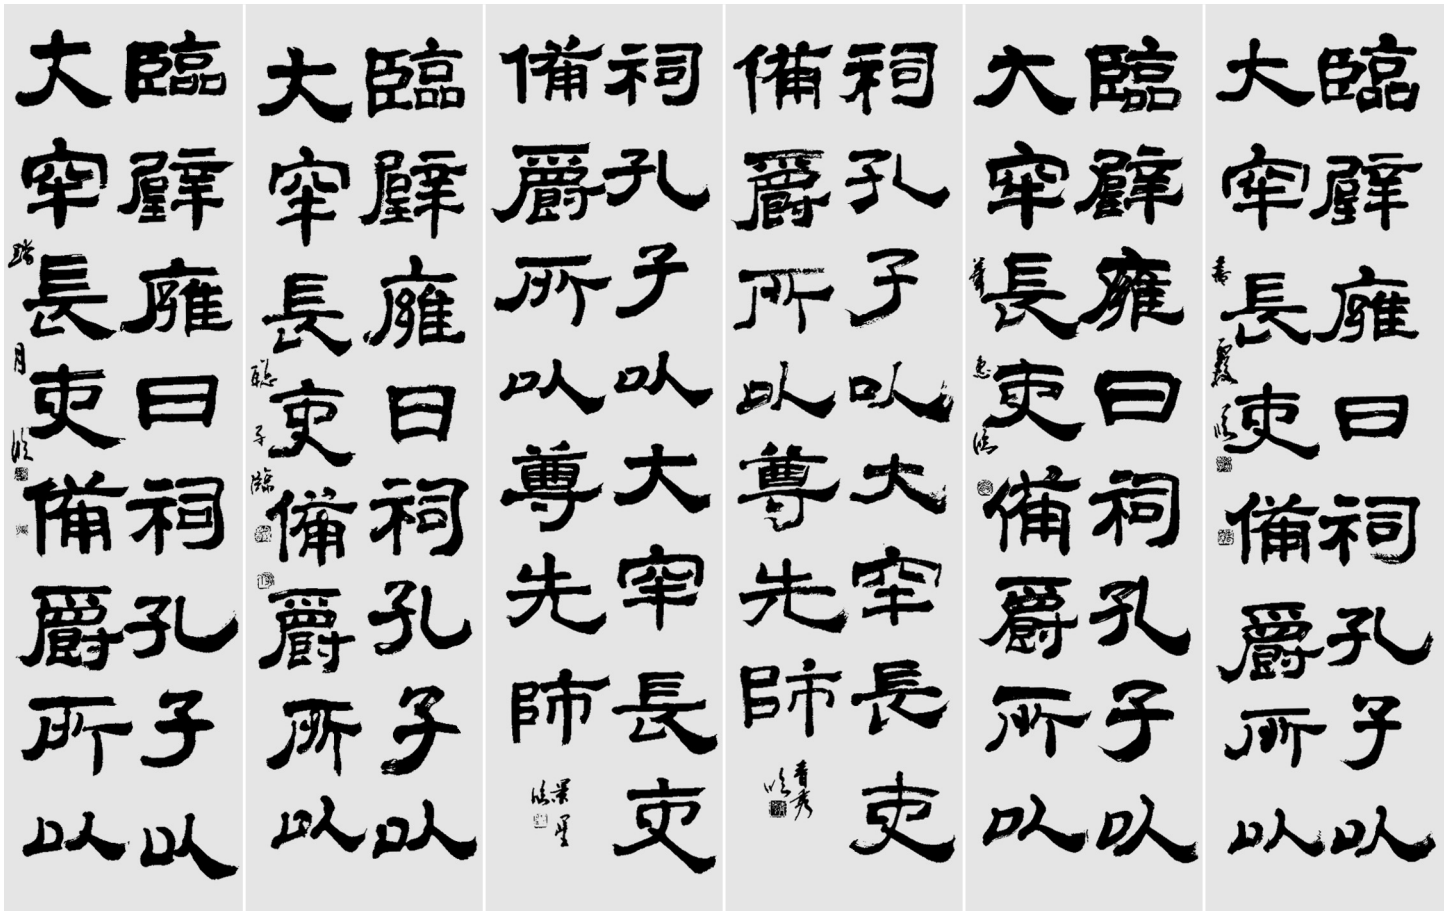 臨璧雍日祠孔子以
大牢長吏備爵所以
臨
臨璧雍日祠孔子以
大牢長吏備爵所以
臨
祠孔子以大牢長吏
備爵所以尊先師
秀
臨
祠孔子以大牢長吏
備爵所以尊先師
景星
臨
臨璧雍日祠孔子以
大牢長吏備爵所以
聽子臨
臨璧雍日祠孔子以
大牢長吏備爵所以
踏月臨